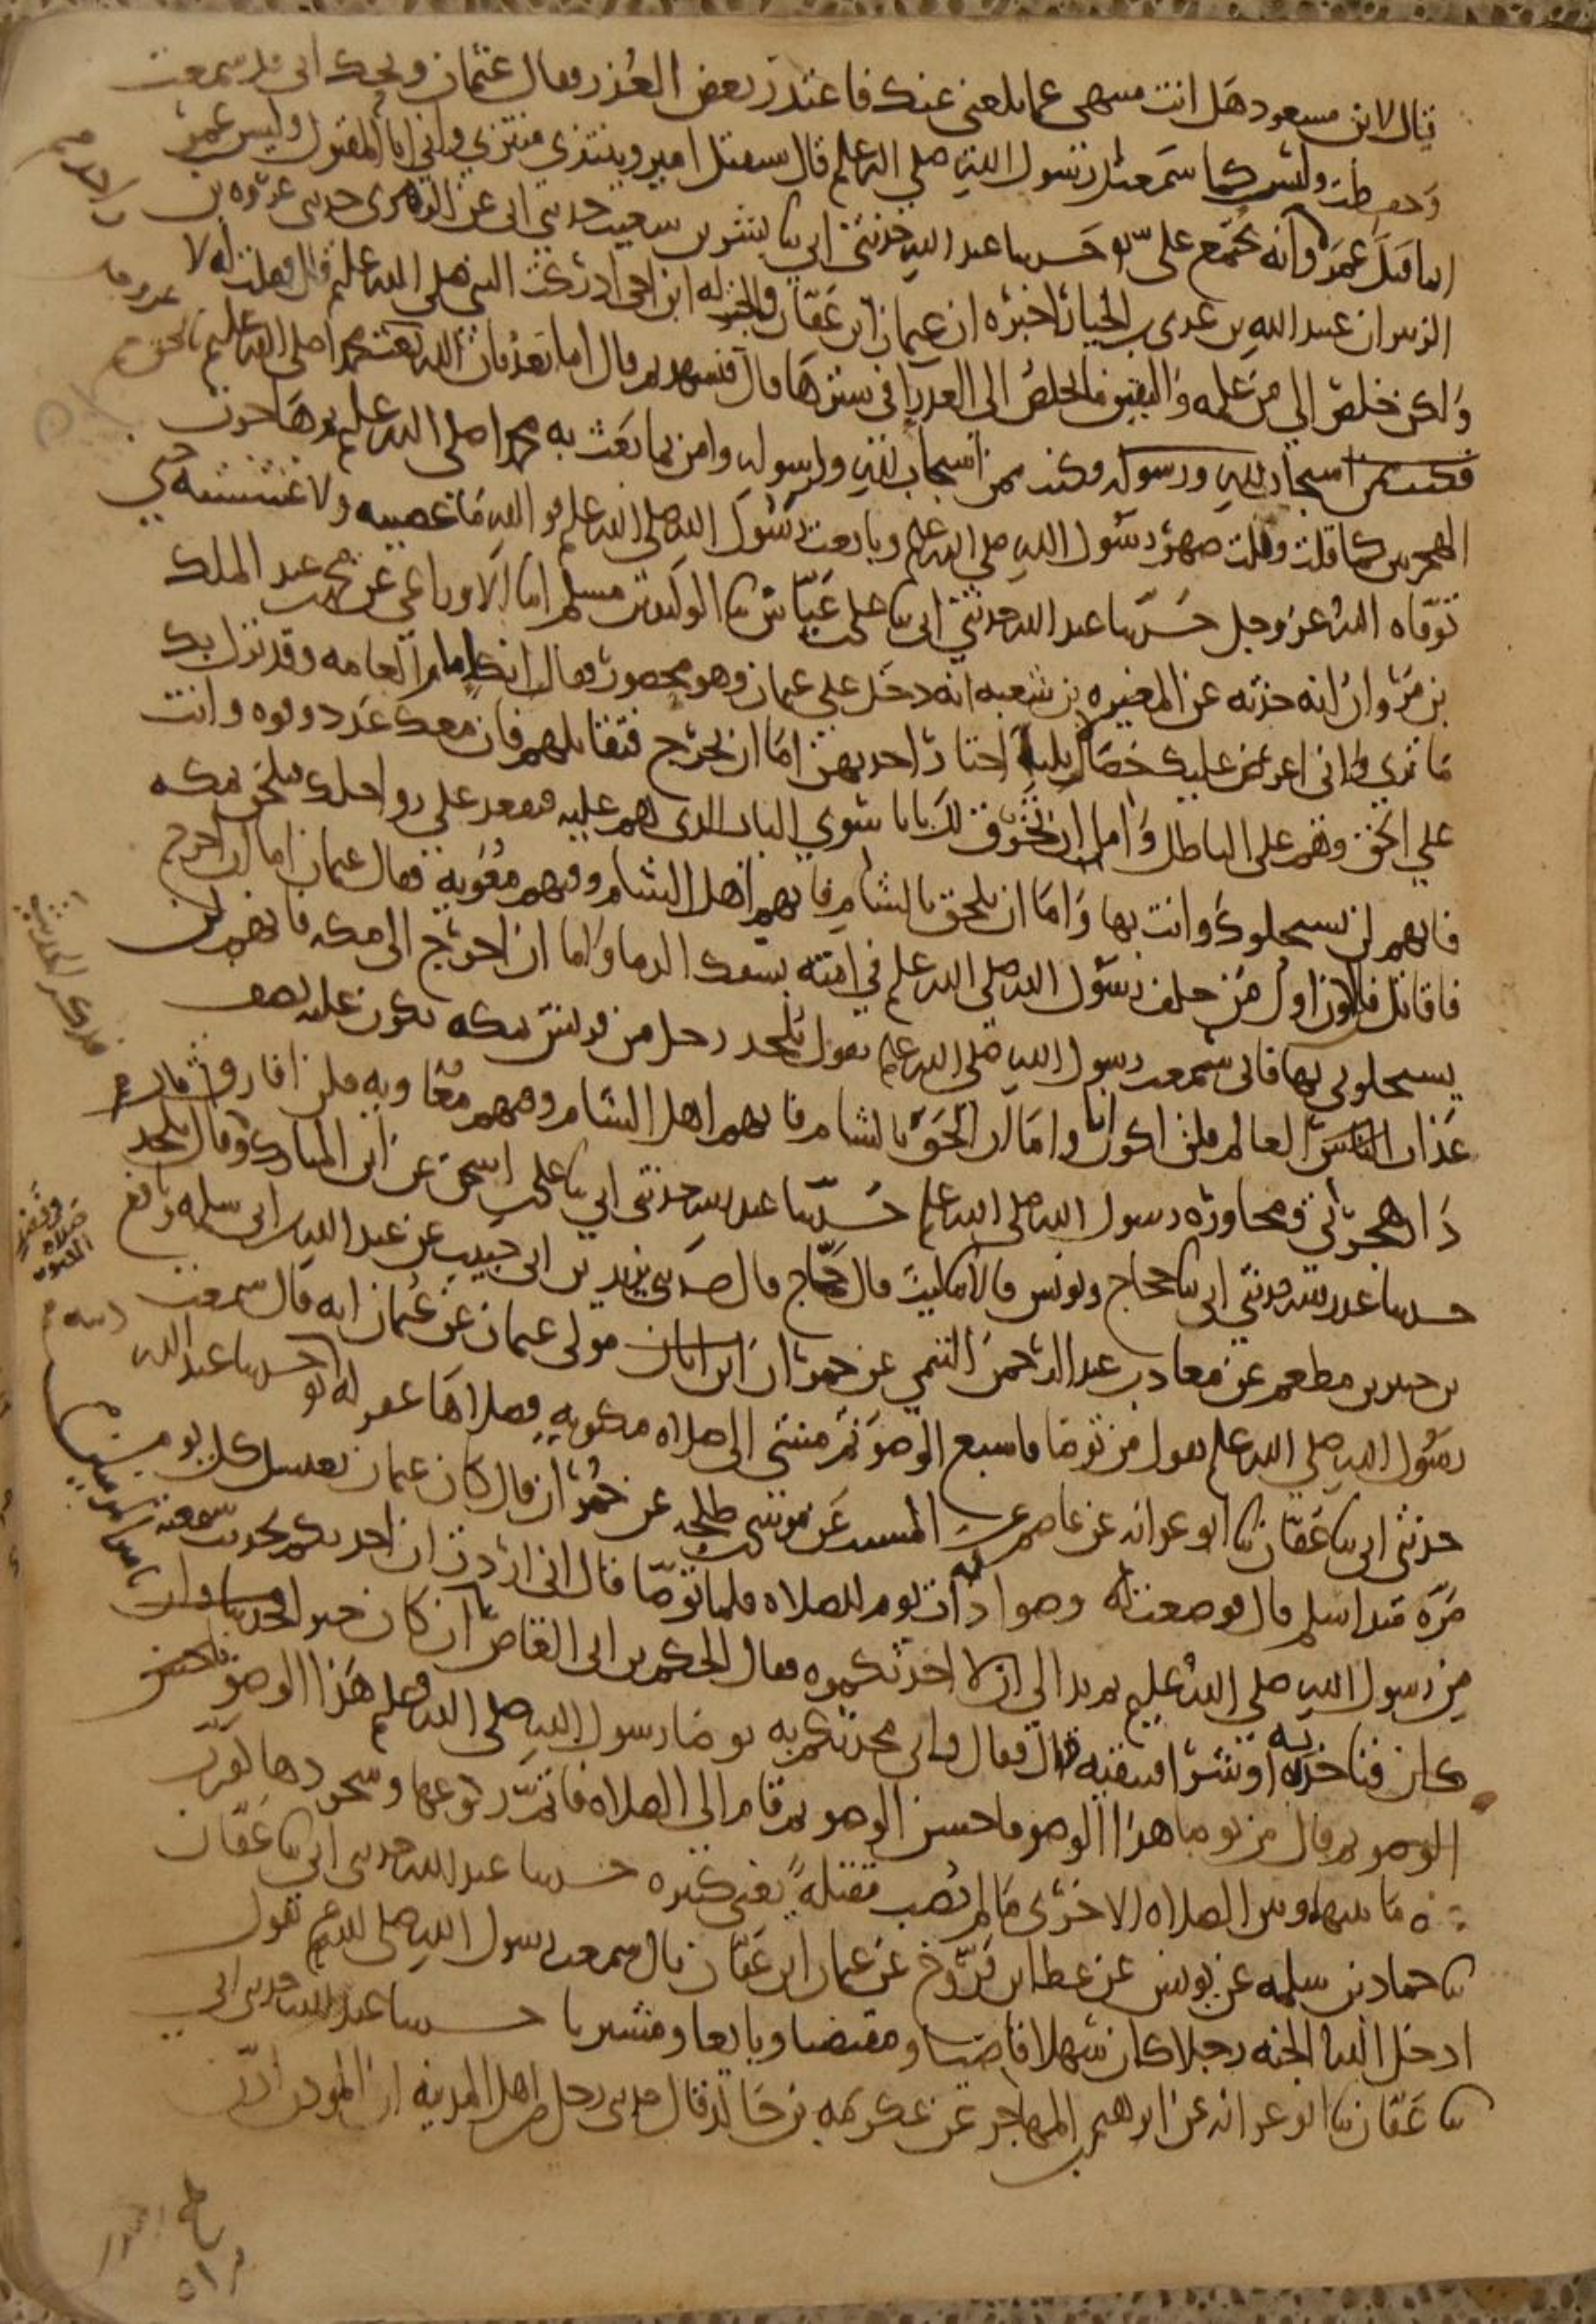 قال لابن مسعود هل انت منتهى عما بلغنى عنك فاعتذر بعض العذر فقال عثمان ويحك انى قد سمعت
وحفظت وليس كما سمعت ان رسول الله صلى الله علم قال سيقتل امير وينتزي منتزي وانى انا المقتول وليس عمر
انما قتل عمر واحد وانه يجتمع علىّ حدسا عبد الله حدثنى ابى سا بشر بن شعيب حدثنى ابى عن الزهرى حدثنى عروه بن
الزبير ان عبيد الله بن عدى بن الخيار اخبره ان عثمان ابن عفان قال له ابن اخى ادركت النبى صلى الله علم قال فقلت له لا
ولكن خلص الى من علمه واليقين ما يخلص الى العذرا فى سترها قال فتشهد ثم قال اما بعد فان الله بعث محمدا صلى الله علم بالحق
فكنت ممن استجاب لله ورسوله وكنت ممن استجاب لله ولرسوله وامن بما بعث به محمد صلى الله علم ثم هاجرت
الهجرتين كما قلت ونلت صهر رسول الله صلى الله علم وبايعت رسول الله صلى الله علم فو الله ما عصيته ولا غششته حتى
توفاه الله عز وجل حدسا عبد الله حدثنى ابى سا على بن عياش سا الوليد بن مسلم انا الاوزاعى عن محمد بن عبد الملك
بن مروان انه حدثه عن المغيره بن شعبه انه دخل على عثمان وهو محصور فقال انك امام العامه وقد نزل بك
ما ترى وانى اعرض عليك خصالا ثلثا اختار احديهن اما ان تخرج فتقاتلهم فان معك عددا وقوه وانت
على الحق وهم على الباطل واما ان تخرق لك بابا سوى الباب الذى هم عليه فتقعد على رواحلك فتلحق بمكه
فانهم لن يستحلوك وانت بها واما ان تلحق بالشام فانهم اهل الشام وفيهم معويه فقال عثمان اما ان اخرج
فاقاتل فلن اكون اول من خلف رسول الله صلى الله علم فى امته بسفك الدما واما ان اخرج الى مكه فانهم لن
يستحلونى بها فانى سمعت رسول الله صلى الله علم يقول يلحد رجل من قريش بمكه يكون عليه نصف
عذاب العالم فلن اكون انا واما ان الحق بالشام فانهم اهل الشام وفيهم معاويه فلن افارق
دار هجرتى ومجاوره رسول الله صلى الله علم حدسا عبد الله حدثنى ابى سا على بن اسحق عن ابن المبارك وقال يلحد
حدسا عبد الله حدثنى ابى سا حجاج ويونس قالا سا ليث قال حجاج قال حدثنى يزيد بن ابى حبيب عن عبد الله بن ابى سلمه ونافع
بن جبير بن مطعم عن معاذ بن عبد الرحمن التيمى عن حمران ابن ابان مولى عثمان عن عثمان انه قال سمعت
رسول الله صلى الله علم يقول من توضا فاسبغ الوضو ثم مشى الى صلاه مكتوبه فصلاها غفر له ذنبه حدسا عبد الله
حدثنى ابى سا عفان سا ابو عوانه عن عاصم عن المسيب عن موسى بن طلحه عن حمران قال كان عثمان يغتسل كل يوم
مره منذ اسلم قال فوضعت له وضوا ذات يوم للصلاه فلما توضا قال انى اردت ان احدثكم بحديث سمعته
من رسول الله صلى الله علم ثم بدا لى ان لا احدثكموه فقال الحكم بن ابى العاص ان كان خيرا
كان فناخذ به او شرا فنتقيه قال فقال فانى محدثكم به توضا رسول الله صلى الله علم هذا الوضو
الوضو ثم قال من توضا هذا الوضو فاحسن الوضو ثم قام الى الصلاه فاتم ركوعها وسجودها كفرت
عنه ما بينها وبين الصلاه الاخرى ما لم يصب مقتلةً يعنى كبيره حدسا عبد الله حدثنى ابى سا عفان
سا حماد بن سلمه عن يونس عن عطا ابن فروخ عن عثمان ابن عفان قال سمعت رسول الله صلى الله علم يقول
ادخل الله الجنه رجلا كان سهلا قاضيا ومقتضيا وبايعا ومشتريا حدسا عبد الله حدثنى ابى
سا عفان سا ابو عوانه عن ابرهيم بن المهاجر عن عكرمه بن خالد قال حدثنى رجل من اهل المدينه ان الموذن اذن